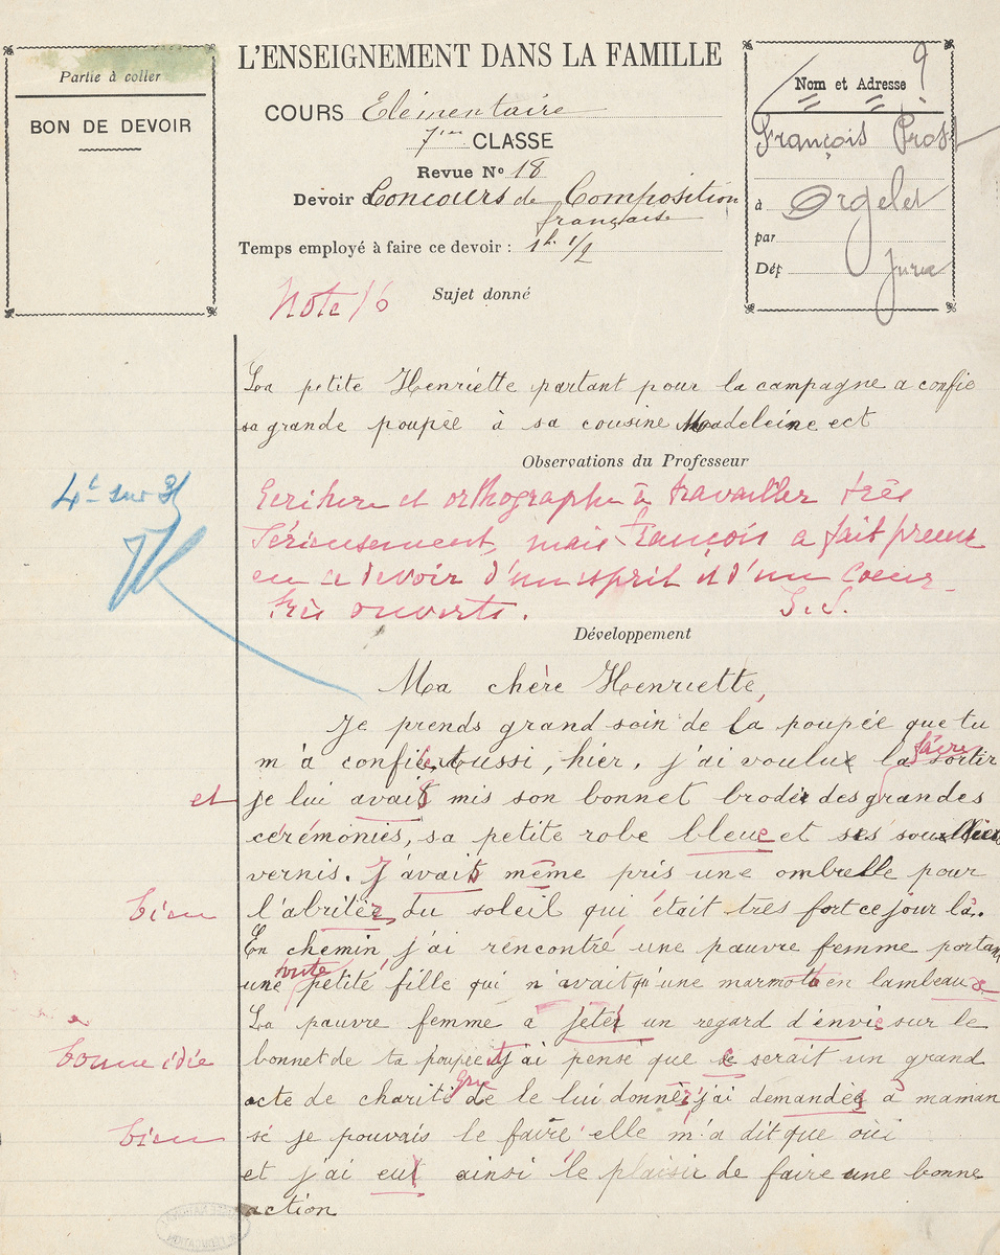 Partie à coller
BON DE DEVOIR
L'ENSEIGNEMENT DANS LA FAMILLE
COURS Elémentaire
7ième CLASSE
Revue No 18
Devoir de Concours de Composition
française
Temps employé à faire ce devoir : 1h 1/2
9
Nom et Adresse
François Prost
à Orgelet
par
Dép Jura
Note 16
Sujet donné
La petite Henriette partant pour la campagne a confié
sa grande poupée à sa cousine Madeleine ect
Observations du Professeur
4e sur 31
Ecriture et orthographe à travailler très
sérieusement, mais François a fait preuve
en ce devoir d'un esprit et d'un coeur
très ouverts. J.S.
Développement
Ma chère Henriette,
Je prends grand soin de la poupée que tu
m'a confiée, Aussi, hier, j'ai voulux la faire sortir
et je lui avait mis son bonnet brodé des grandes
cérémonies, sa petite robe bleue et ses souliers
vernis. J'avais même pris une ombrelle pour
bien l'abriter du soleil qui était très fort ce jour là.
En chemin, j'ai rencontré une pauvre femme portant
une toute petite fille qui n'avait qu'une marmotte en lambeaux
La pauvre femme a jeté un regard d'envie sur le
bonne idée bonnet de ta poupée et j'ai pensé que ce serait un grand
acte de charité que de le lui donner, j'ai demandé à maman
bien sé je pouvais le faire elle m'a dit que oui
et j'ai eut ainsi le plaisir de faire une bonne
action